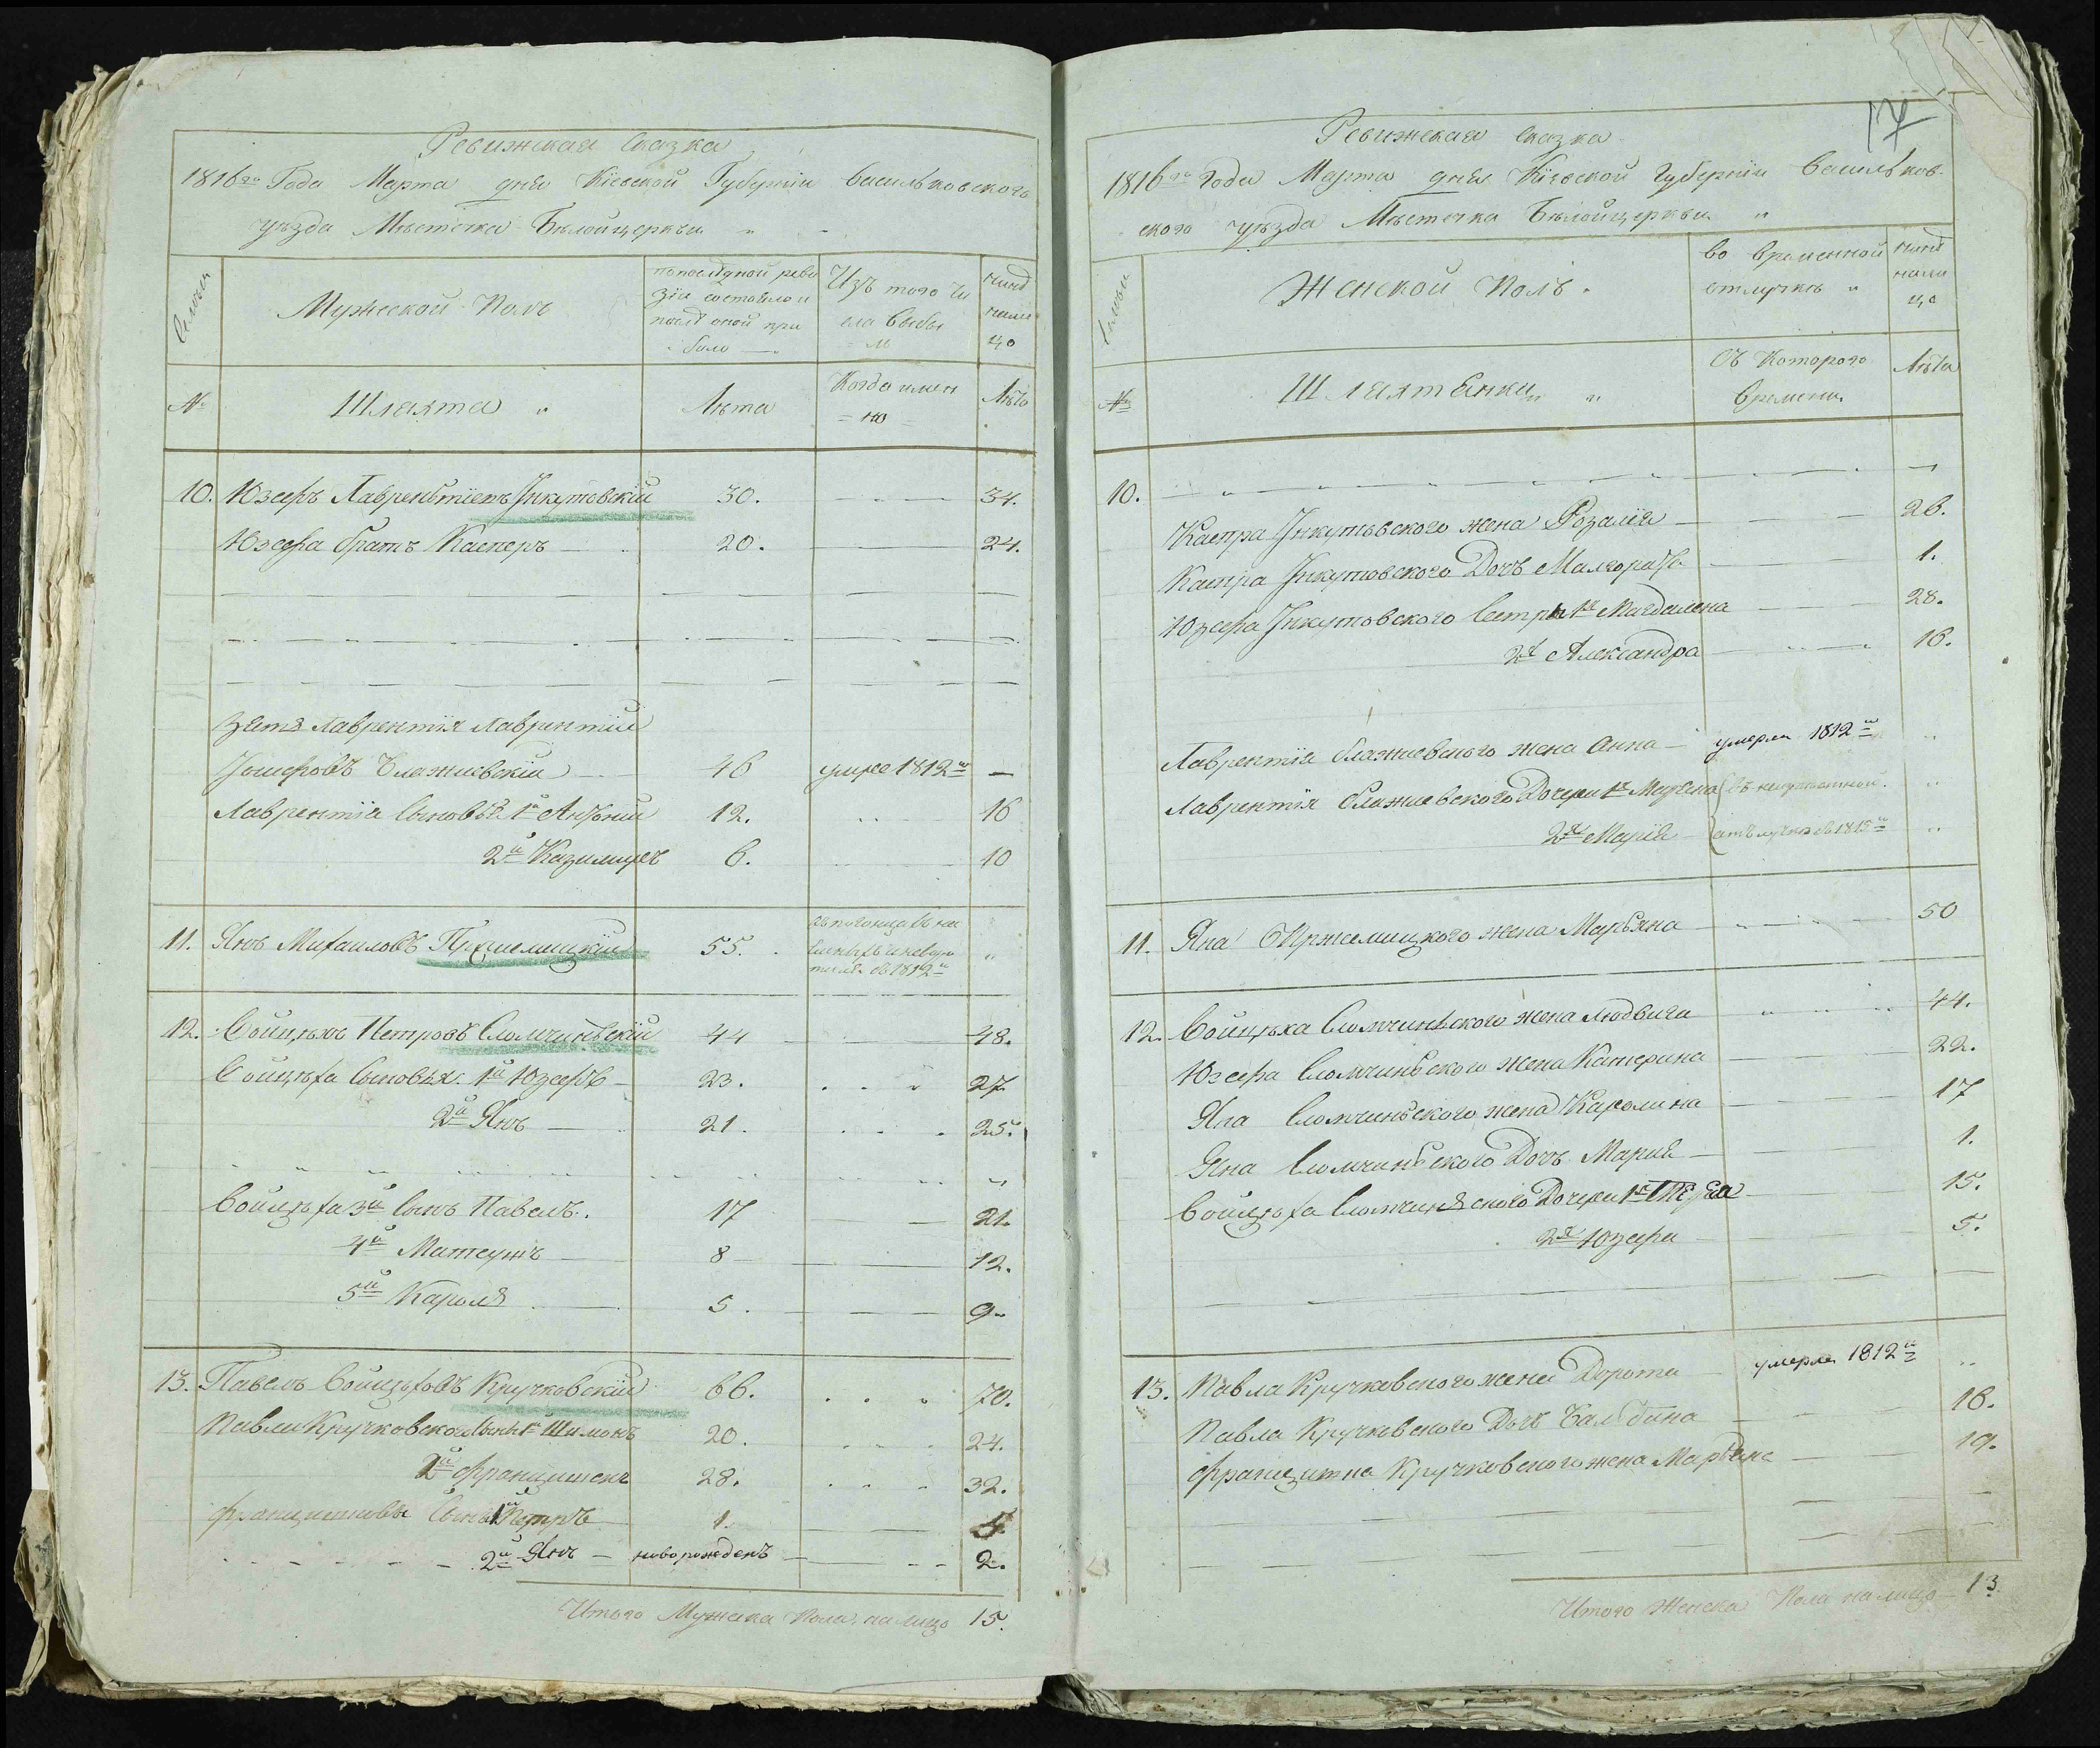 Ревижская Сказка
1816го Года Марта дня Кіевской Губерніи Васильковского
уѣзда Мѣстечка Бѣлойцеркви
Семьи
Мужеской Полъ
по последней реви
зіи состояло и
послѣ оной при
было
Изъ того чи
сла выбы
ло
нынѣ
нали
цо
№
Шляхта
Лѣта
Когда имен
но
Лѣта
10. Юзефъ Лаврентіевъ Инкутовскій 30. 34.
Юзефа братъ Касперъ 20. 24.
Зять Лаврентія Лаврентій
Іосифовъ Блажиевскій 46 умре 1812го —
Лаврентія Сыновья 1й Антоній 12. 16
2й Казимиръ 6. 10
11. Янъ Михаиловъ Пржемицкій 55.
12. Войцѣхъ Петровъ Сломчиньскій 44 48.
Войцѣха Сыновья 1й Юзефъ 23. 27
2й Янъ 21. 25.
Войцѣха 3й Сынъ Павелъ 17 21.
4й Матеужъ 8 12.
5й Кароля 5. 9.
13. Павелъ Войцѣховъ Кручковскій 66. 70.
Павла Кручковского Сынъ 1й Шимонъ 20. 24.
2й Францишекъ 28. 32.
Францишковы Сынъ 1й Петръ 1. 5.
2й Янъ — новорожденъ 2.
Итого Мужеска Пола налицо 15.
17
Ревижская Сказка
1816го Года Марта дня Кіевской Губерніи Васильков-
ского уѣзда Мѣстечка Бѣлойцеркви
Семьи
Женской Полъ
во временной
отлучкѣ
нынѣ
нали
цо
№
Шляхтянки
Съ Которого
времени
Лѣта
10.
Каспра Инкутовского жена Розалія 26.
Каспра Инкутовского Дочь Малгората 1.
Юзефа Инкутовского Сестра 1я Магдалена 28.
2я Александра 16.
Лаврентія Блажиевского жена Анна — умерла 1812го
Лаврентія Блажиевского Дочери 1я
2я Марія отлучкѣ съ 1815го
11. Яна Пржемицкого жена Марьяна 50
12. Войцѣха Сломчиньского жена Людвига 44.
Юзефа Сломчиньского жена Катерина 22.
Яна Сломчиньского жена Каролина 17
Яна Сломчиньского Дочь Марія 1.
Войцѣха Сломчиньского Дочери 1я Тереса 15.
2я Юзефа 5.
13. Павла Кручковского жена Дорота умерла 1812го
Павла Кручковского Дочь Бальбина 16.
Францишка Кручковского жена Марьяна 19.
Итого Женска Пола налицо 13.